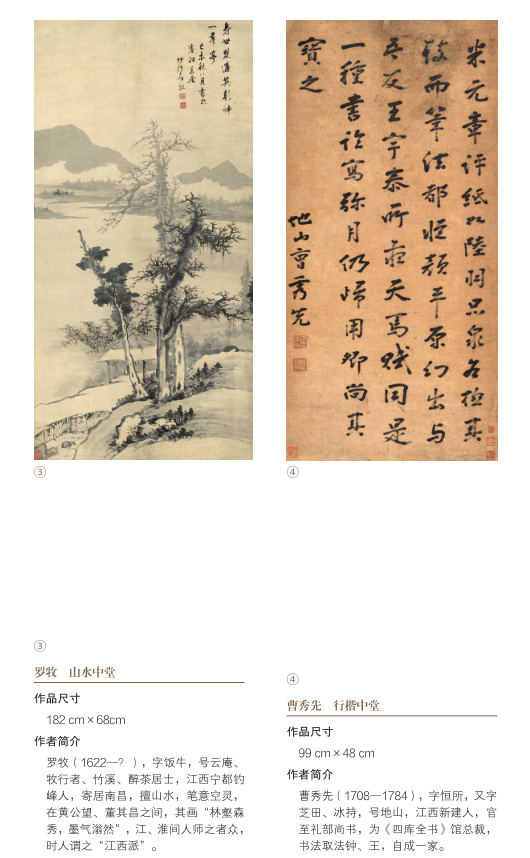 一草亭
己未秋八月
米元章評紙如陸羽品泉各極其
致而筆法都從顏平原幻出与
吾友王宇泰所藏天馬賦同是
一種書臨寫弥月仍歸用卿尚其
寶之
地山曹秀先
③
④
③
罗牧 山水中堂
作品尺寸
182 cm×68cm
作者简介
罗牧（1622—？），字饭牛，号云庵、
牧行者、竹溪、醉茶居士，江西宁都钓
峰人，寄居南昌，擅山水，笔意空灵，
在黄公望、董其昌之间，其画“林壑森
秀，墨气滃然”，江、淮间人师之者众，
时人谓之“江西派”。
④
曹秀先 行楷中堂
作品尺寸
99 cm×48 cm
作者简介
曹秀先（1708—1784），字恒所，又字
芝田、冰持，号地山，江西新建人，官
至礼部尚书，为《四库全书》馆总裁，
书法取法钟、王，自成一家。